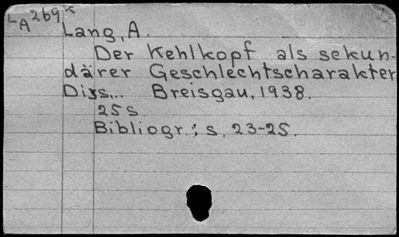 LA269K
Lang, A.
Der Kehlkopf als sekun-
därer Geschlechtscharakter
Diss... Breisgau, 1938.
25 s.
Bibliogr.: s. 23-25.